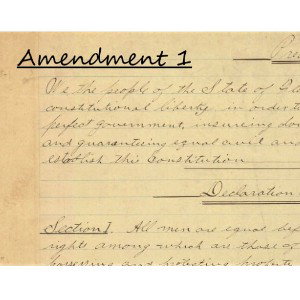 Amendment 1
Pre
We the people of the State of
constitutional liberty, in order to
perfect government, insuring do
and guaranteeing equal civil and
establish this Constitution
Declaration
Section 1. All men are equal bef
rights among which are those
possessing and protecting property